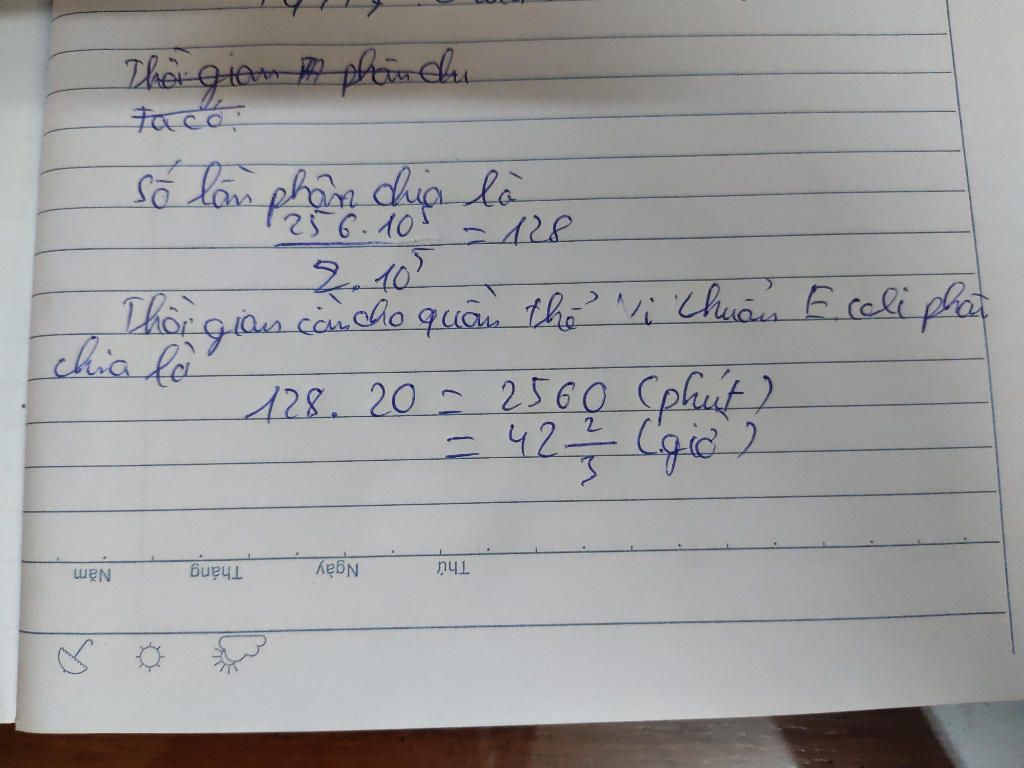 Thời gian phân chi
ta có:
số lần phân chia là
256.10⁵ = 128
2.10⁵
Thời gian cần cho quần thể vi khuẩn E.coli phân
chia là
128. 20 = 2560 (phút)
= 42 2/3 (giờ)
Thứ Ngày Tháng Năm